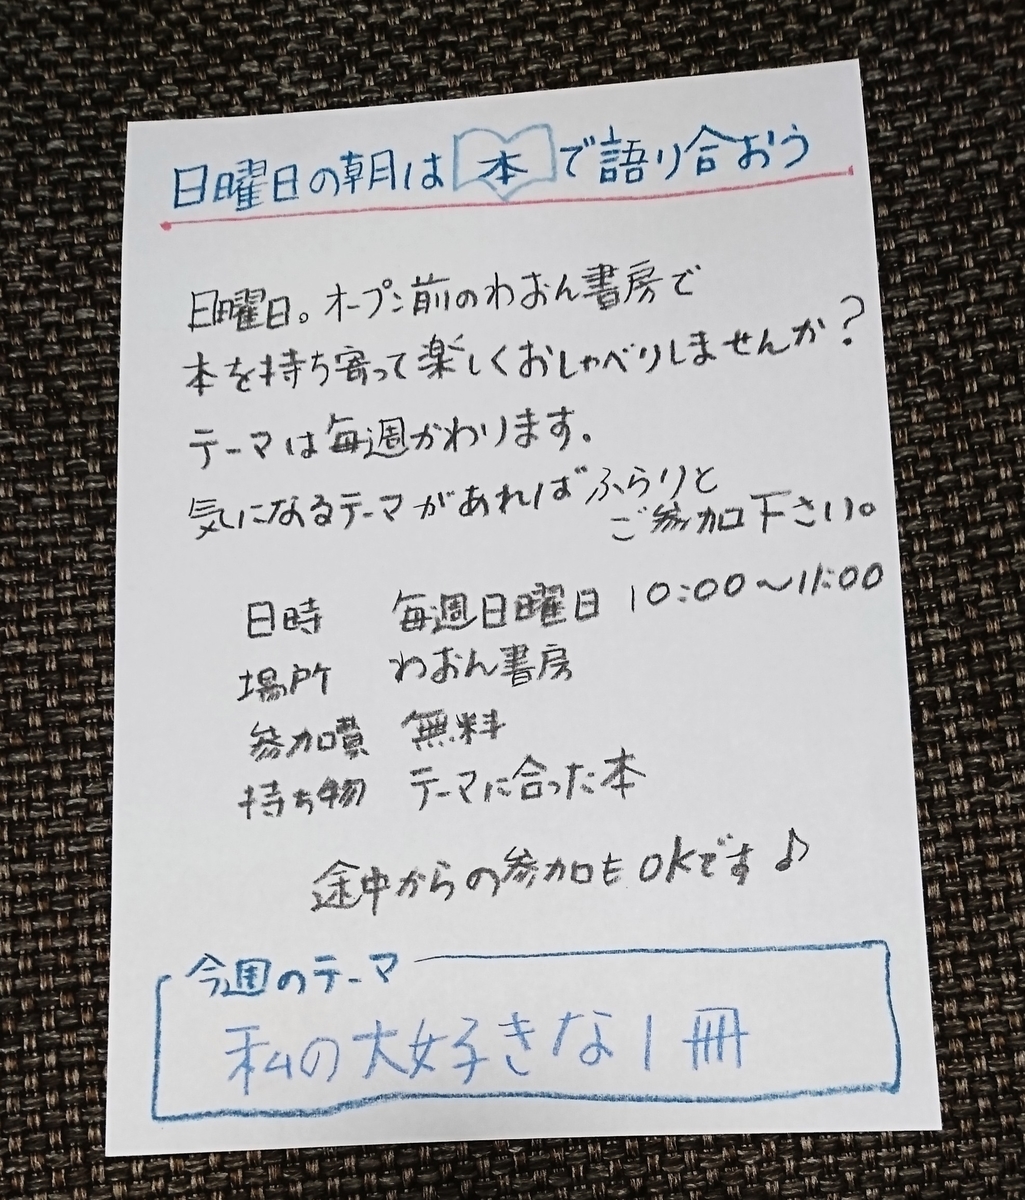 日曜日の朝は本で語り合おう
日曜日。オープン前のわおん書房で
本を持ち寄って楽しくおしゃべりしませんか?
テーマは毎週かわります。
気になるテーマがあればふらりと
ご参加下さい。
日時 毎週日曜日 10:00~11:00
場所 わおん書房
参加費 無料
持ち物 テーマに合った本
途中からの参加もOKです♪
今週のテーマ
私の大好きな1冊